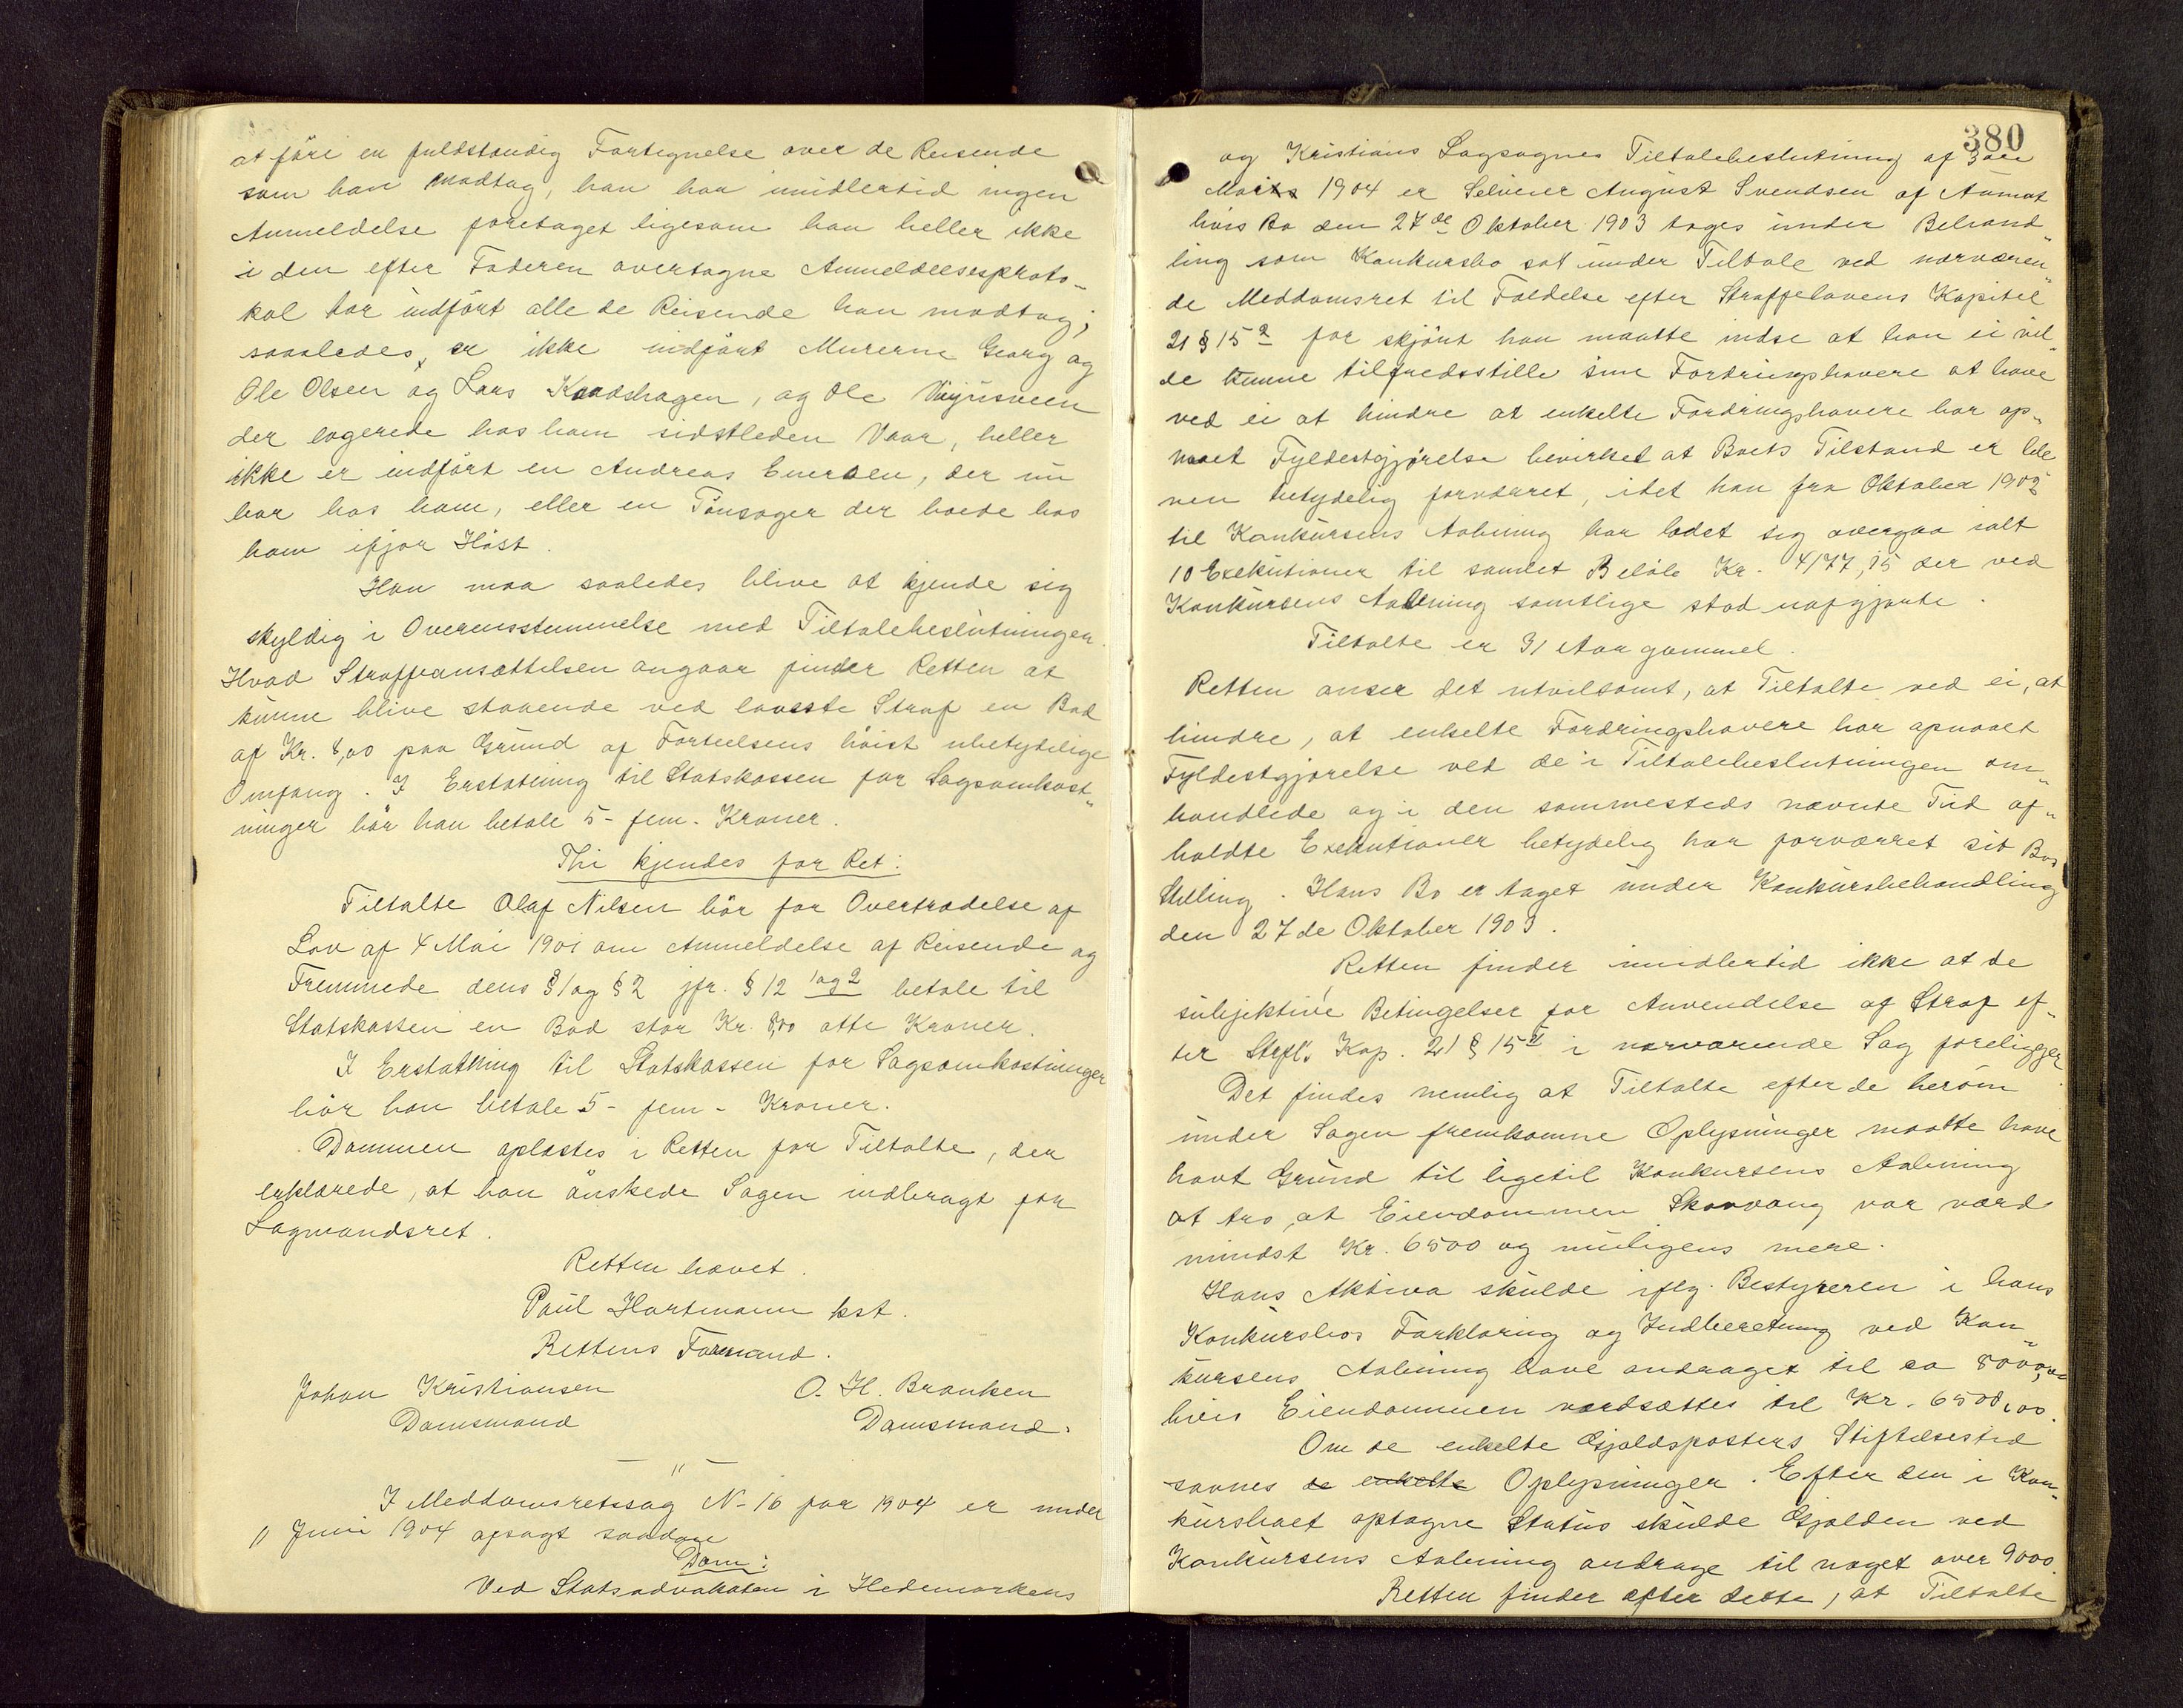 at føre en fuldstændig Fortegnelse over de Reisende
som han modtog, han har imidlertid ingen
Anmeldelse foretaget ligesom han heller ikke
i den efter Faderen overtagne Anmeldelsesproto-
kol har indført alle de Reisende han modtog;
saaledes er ikke indført Murerne Georg og
Ole Olsen og Lars Kaadshagen, og Ole
der logerede hos ham sidstleden Vaar, heller
ikke er indført en Andreas Enersen, der nu
bor hos ham, eller en Tønsager der boede hos
ham ifjor Høst.
Han maa saaledes blive at kjende sig
skyldig i Overensstemmelse med Tiltalebeslutningen.
Hvad Straffeansættelsen angaar finder Retten at
kunne blive staaende ved laveste Straf en Bod
af Kr. 8,00 paa Grund af Forteelsens høist ubetydelige
Omfang. I Erstatning til Statskassen for Sagsomkost-
ninger bør han betale 5 - fem - Kroner.
Thi kjendes for Ret:
Tiltalte Olaf Nilsen bør for Overtrædelse af
Lov af 4 Mai 1901 om Anmeldelse af Reisende og
Fremmede dens § 1 og § 2 jfr. § 12 1 og 2 betale til
Statskassen en Bod stor Kr. 8,00 otte Kroner.
I Erstatning til Statskassen for Sagsomkostninger
bør han betale 5 - fem - Kroner.
Dommen oplæstes i Retten for Tiltalte, der
erklærede, at han ønskede Sagen indbragt for
Lagmandsret.
Retten hævet.
Paul Hartmann kst.
Rettens Formand.
Johan Kristiansen O. H. Branken
Domsmand Domsmand.
— " —
I Meddomsretssag N- 16 for 1904 er under
11 Juni 1904 afsagt saadan
Dom:
Ved Statsadvokaten i Hedemarkens
380
og Kristians Lagsognes Tiltalebeslutning af 3die
Marts 1904 er Selveier August Svendsen af Aamot
hvis Bo den 27de Oktober 1903 toges under Behand-
ling som Konkursbo sat under Tiltale ved nærværen-
de Meddomsret til Fældelse efter Straffelovens Kapitel
21 § 15 2 for skjønt han maatte indse at han ei vil-
de kunne tilfredsstille sine Fordringshavere at have
ved ei at hindre at enkelte Fordringshavere har op-
naaet Fyldestgjørelse bevirket at Boets Tilstand er ble
ven betydelig forværret, idet han fra Oktober 1902
til Konkursens Aabning har ladet sig overgaa ialt
10 Exekutioner til samlet Beløb Kr. 4177,15 der ved
Konkursens Aabning samtlige stod uopgjorte.
Tiltalte er 31 Aar gammel.
Retten anser det utvilsomt, at Tiltalte ved ei, at
hindre, at enkelte Fordringshavere har opnaaet
Fyldestgjørelse ved de i Tiltalebeslutningen om-
handlede og i den sammesteds nævnte Tid af-
holdte Exekutioner betydelig har forværret sit Bos
Stilling. Hans Bo er taget under Konkursbehandling
den 27de Oktober 1903.
Retten finder imidlertid ikke at de
subjektive Betingelser for Anvendelse af Straf ef-
ter Strfl's Kap. 21 § 15 2 i nærværende Sag foreligger.
Det findes nemlig at Tiltalte efter de herom
under Sagen fremkomne Oplysninger maatte have
havt Grund til ligetil Konkursens Aabning
at tro, at Eiendommen Skovvang var værd
mindst Kr. 6500 og muligens mere.
Hans Aktiva skulde iflg. Bestyreren i hans
Konkursbos Forklaring og Indberetning ved Kon-
kursens Aabning have andraget til ca 8000,00
hvis Eiendommen værdsættes til Kr. 6500,00.
Om de enkelte Gjældsposters Stiftelsestid
savnes de enkelte Oplysninger. Efter den i Kon-
kursboet optagne Status skulde Gjælden ved
Konkursens Aabning andrage til noget over 9000.
Retten finder efter dette, at Tiltalte